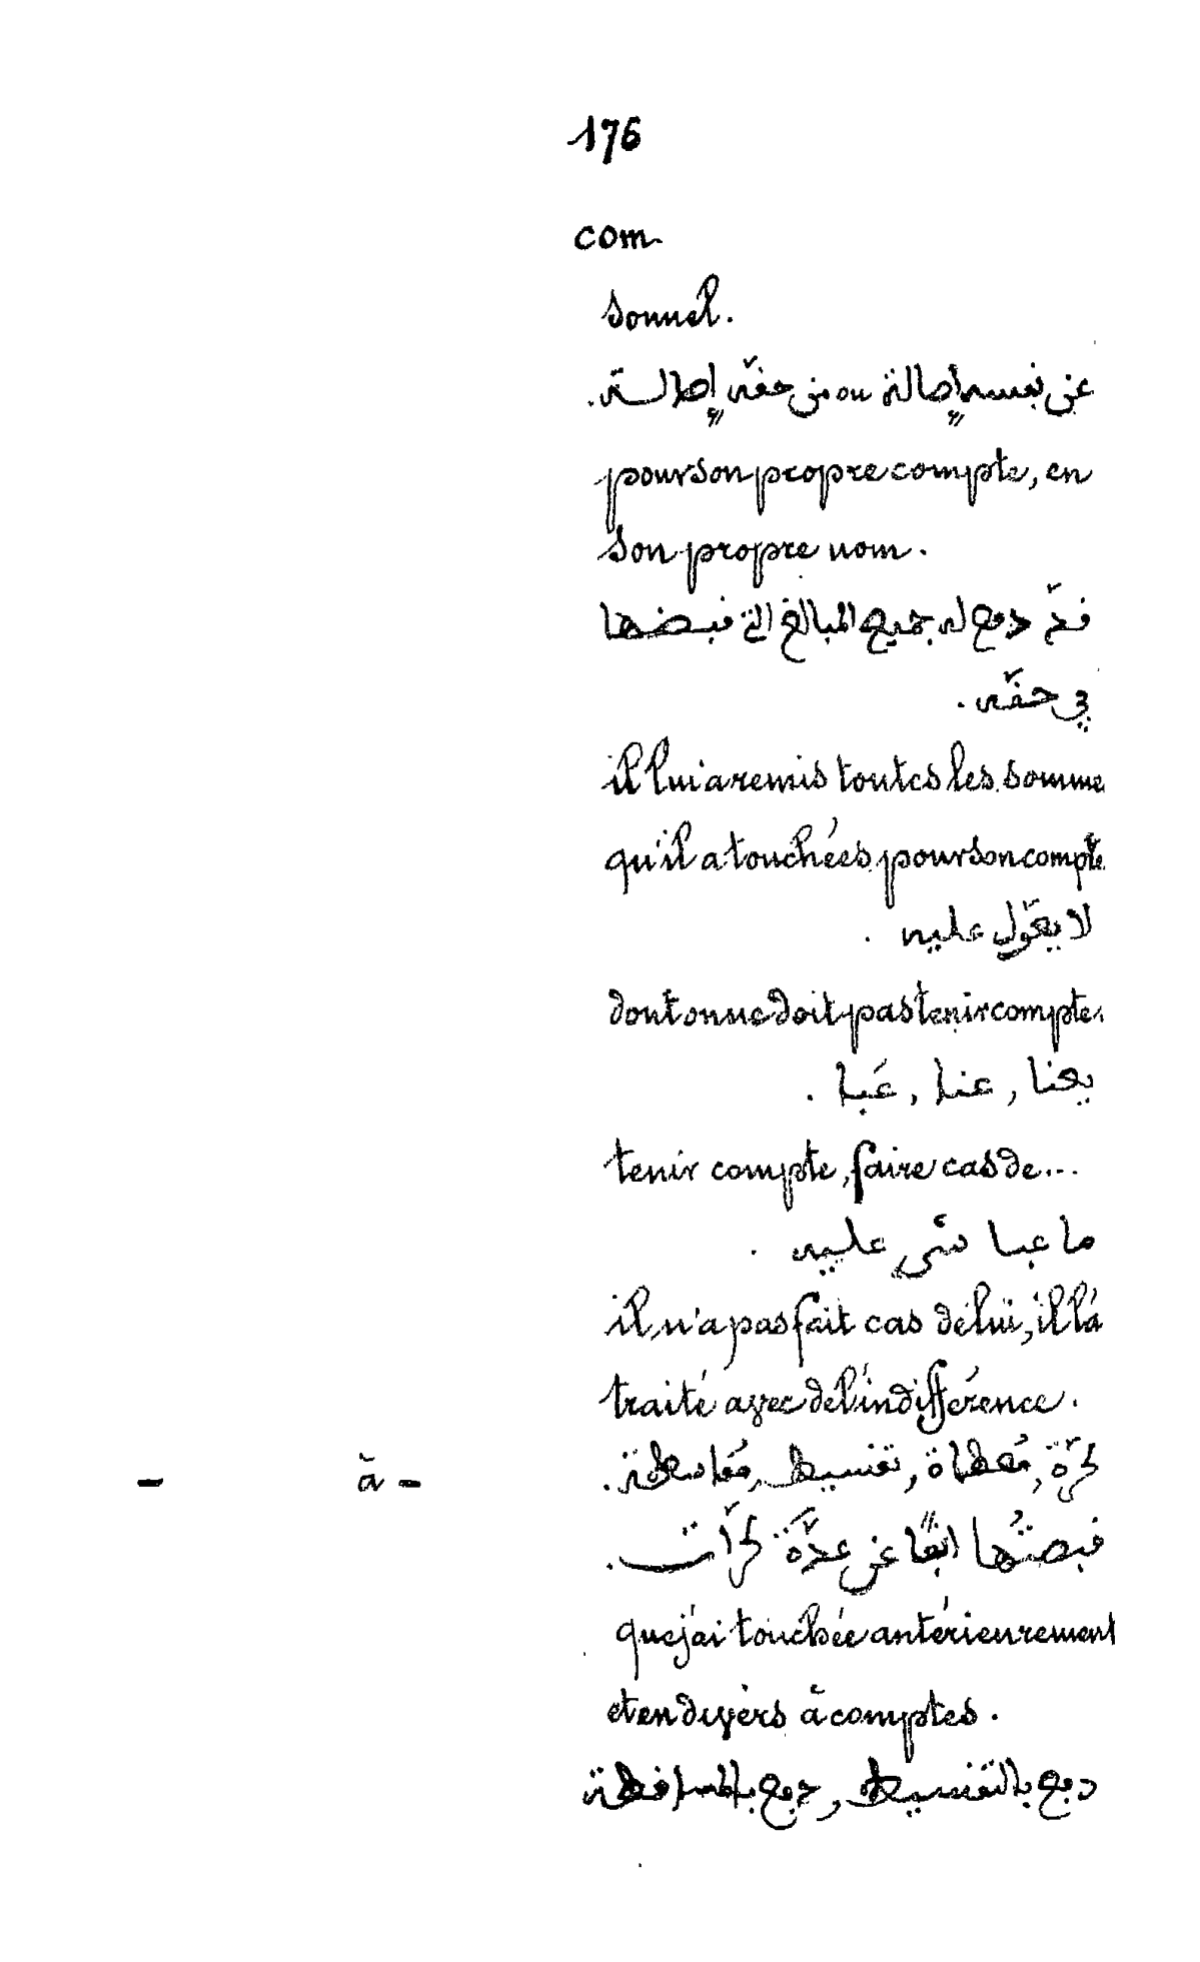 176
com.
sonnel.
عن نفسه إصالة ou من حقّه إصالة.
pour son propre compte, en
son propre nom.
قدّ دفع له جميع المبالغ التي قبضها
في حقّه.
il lui a remis toutes les somme
qu'il a touchées pour son compte
لا يعوّل عليه.
dont on ne doit pas tenir compte.
يعنا, عنا, عَبا.
tenir compte, faire cas de...
ما عبا شي عليه.
il n'a pas fait cas de lui, il l'a
traité avec de l'indifférence.
— à — مُعطاة, تقسيط, مُقاسطة.
قبضتُها عن عدَّة.
que j'ai touchée antérieurement
et en divers à comptes.
دفع بالتقسيط, دفع